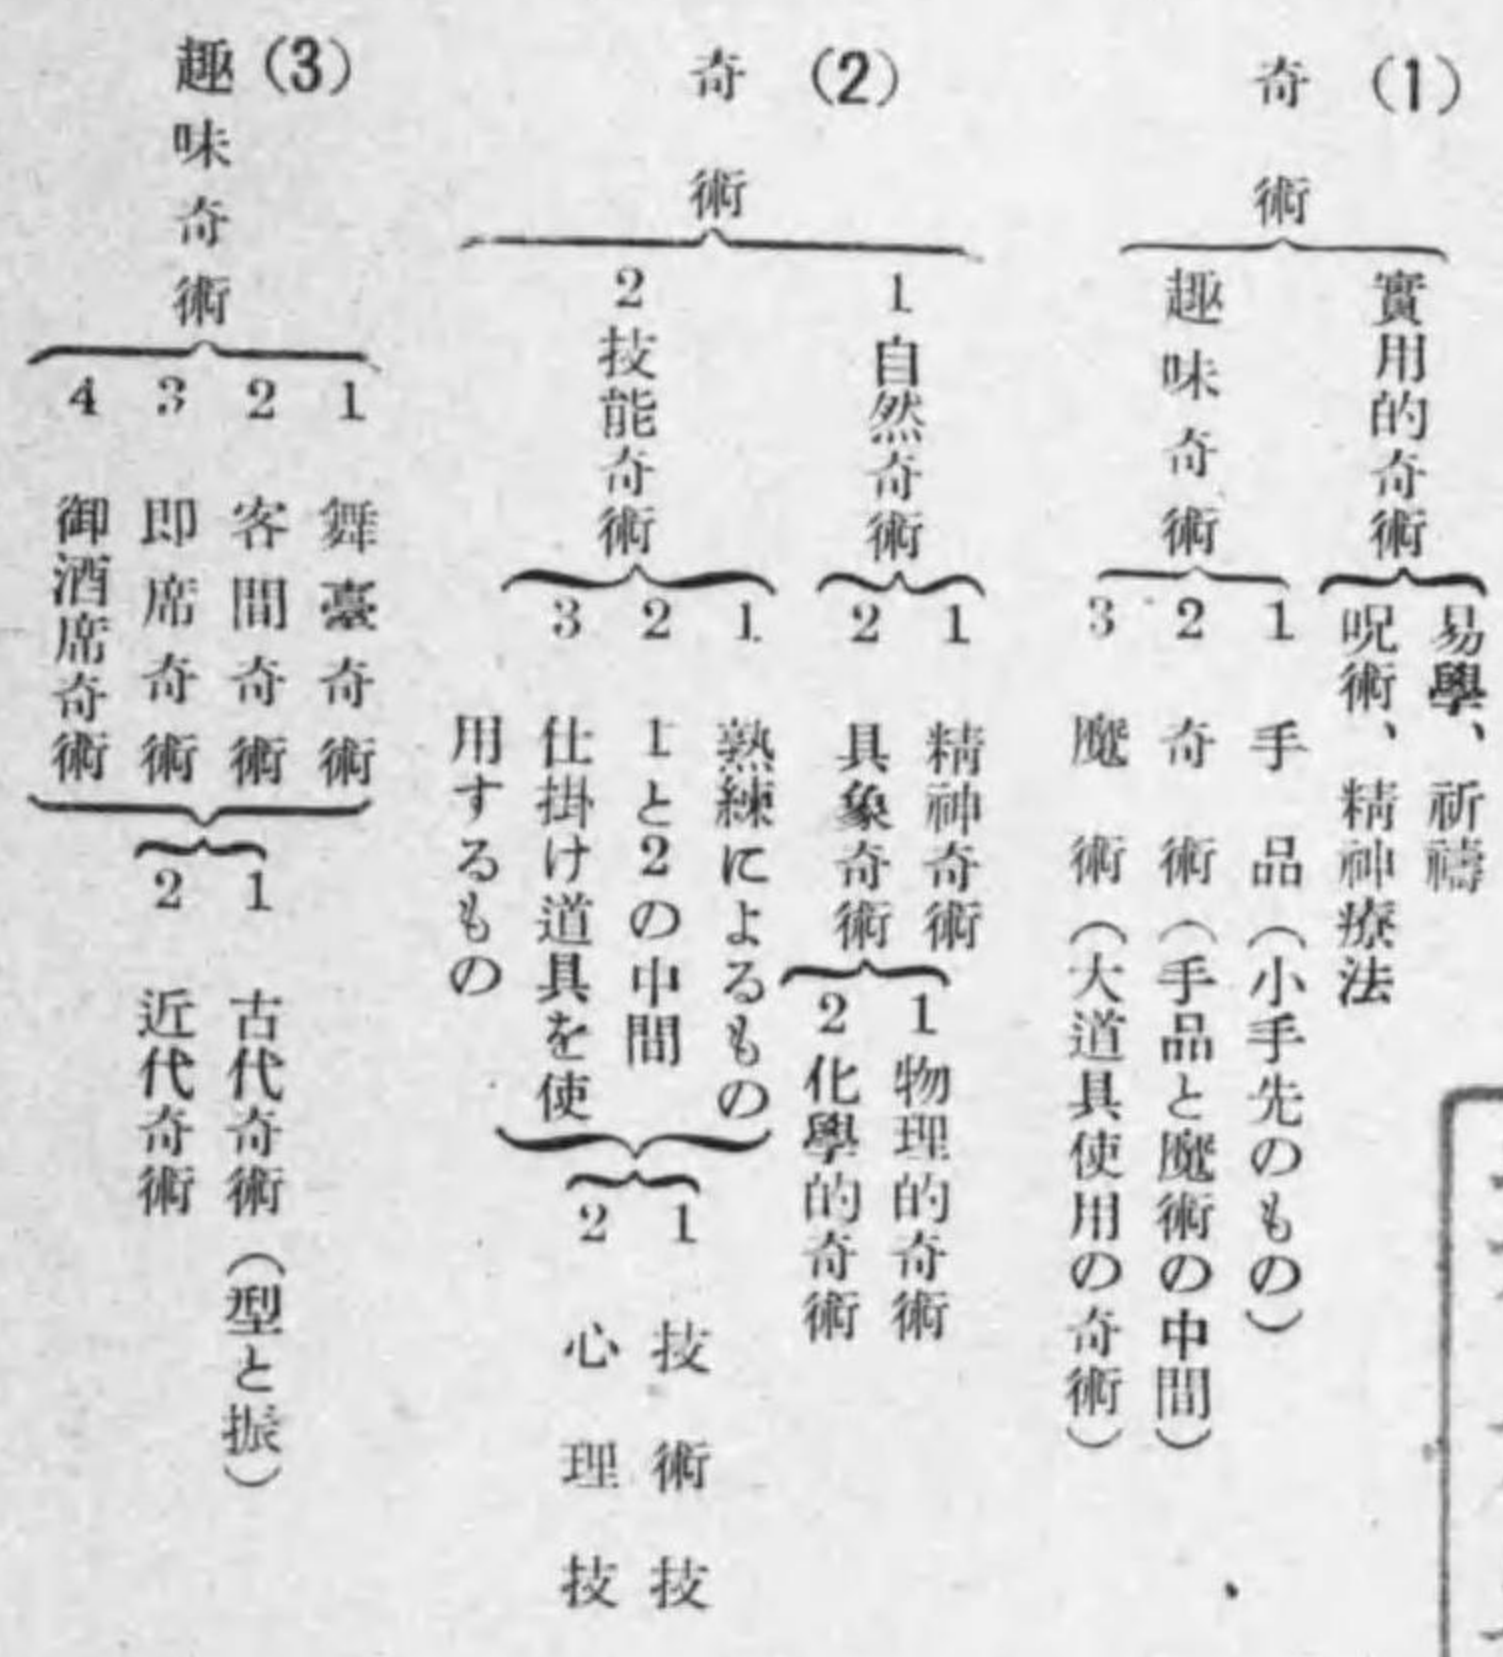 (1)
奇術
實用的奇術
易學、祈禱
呪術、精神療法
趣味奇術
1 手品(小手先のもの)
2 奇術(手品と魔術の中間)
3 魔術(大道具使用の奇術)
(2)
奇術
1 自然奇術
1 精神奇術
2 具象奇術
1 物理的奇術
2 化學的奇術
2 技能奇術
1. 熟練によるもの
2 1と2の中間
3 仕掛け道具を使
用するもの
1 技術技
2 心理技
(3)
趣味奇術
1 舞臺奇術
2 客間奇術
3 即席奇術
4 御酒席奇術
1 古代奇術(型と振)
2 近代奇術